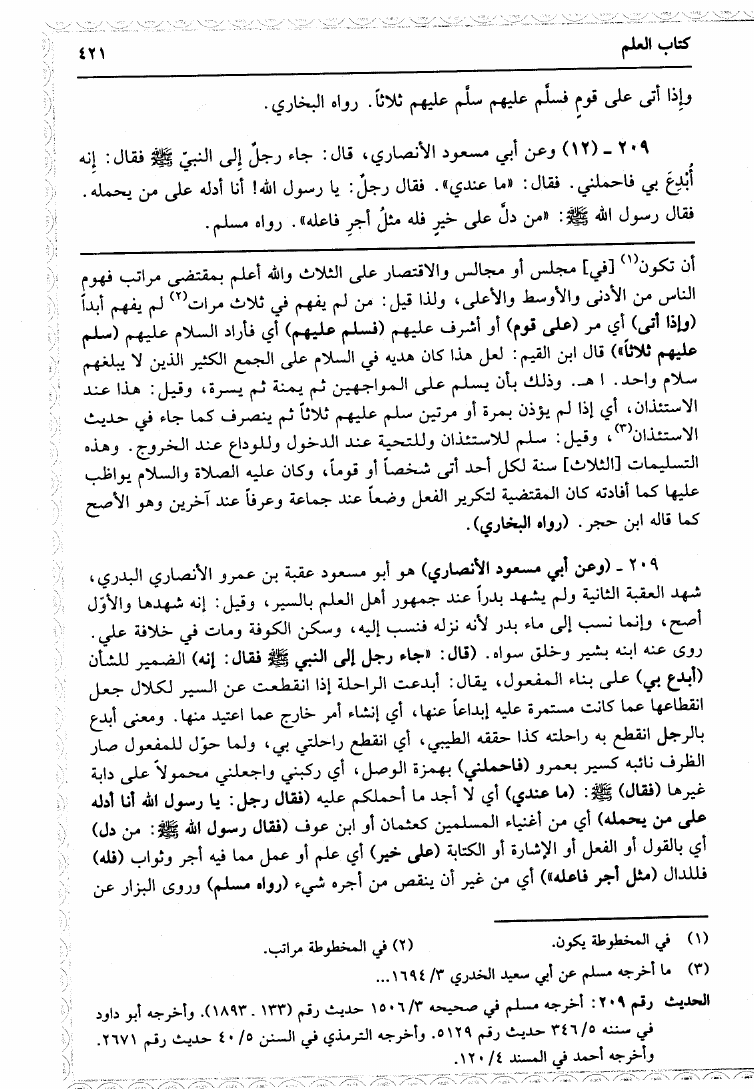 كتاب العلم
٤٢١
وإذا أتى على قومٍ فسلَّم عليهم سلَّم عليهم ثلاثاً. رواه البخاري.
٢٠٩ ـ (١٢) وعن أبي مسعود الأنصاري، قال: جاء رجلٌ إلى النبيّ ﷺ فقال: إنه
أُبْدِعَ بي فاحملني. فقال: «ما عندي». فقال رجلٌ: يا رسول الله! أنا أدله على من يحمله.
فقال رسول الله ﷺ: «من دلَّ على خيرٍ فله مثلُ أجرِ فاعله». رواه مسلم.
أن تكون(١) [في] مجلس أو مجالس والاقتصار على الثلاث والله أعلم بمقتضى مراتب فهوم
الناس من الأدنى والأوسط والأعلى، ولذا قيل: من لم يفهم في ثلاث مرات(٢) لم يفهم أبداً
(وإذا أتى) أي مر (على قوم) أو أشرف عليهم (فسلم عليهم) أي فأراد السلام عليهم (سلم
عليهم ثلاثاً») قال ابن القيم: لعل هذا كان هديه في السلام على الجمع الكثير الذين لا يبلغهم
سلام واحد. ا هـ. وذلك بأن يسلم على المواجهين ثم يمنة ثم يسرة، وقيل: هذا عند
الاستئذان، أي إذا لم يؤذن بمرة أو مرتين سلم عليهم ثلاثاً ثم ينصرف كما جاء في حديث
الاستئذان(٣)، وقيل: سلم للاستئذان وللتحية عند الدخول وللوداع عند الخروج. وهذه
التسليمات [الثلاث] سنة لكل أحد أتى شخصاً أو قوماً، وكان عليه الصلاة والسلام يواظب
عليها كما أفادته كان المقتضية لتكرير الفعل وضعاً عند جماعة وعرفاً عند آخرين وهو الأصح
كما قاله ابن حجر. (رواه البخاري).
٢٠٩ ـ (وعن أبي مسعود الأنصاري) هو أبو مسعود عقبة بن عمرو الأنصاري البدري،
شهد العقبة الثانية ولم يشهد بدراً عند جمهور أهل العلم بالسير، وقيل: إنه شهدها والأوّل
أصح، وإنما نسب إلى ماء بدر لأنه نزله فنسب إليه، وسكن الكوفة ومات في خلافة علي.
روى عنه ابنه بشير وخلق سواه. (قال: «جاء رجل إلى النبي ﷺ فقال: إنه) الضمير للشأن
(أبدع بي) على بناء المفعول، يقال: أبدعت الراحلة إذا انقطعت عن السير لكلال جعل
انقطاعها عما كانت مستمرة عليه إبداعاً عنها، أي إنشاء أمر خارج عما اعتيد منها. ومعنى أبدع
بالرجل انقطع به راحلته كذا حققه الطيبي، أي انقطع راحلتي بي، ولما حوّل للمفعول صار
الظرف نائبه كسير بعمرو (فاحملني) بهمزة الوصل، أي ركبني واجعلني محمولاً على دابة
غيرها (فقال) ﷺ: (ما عندي) أي لا أجد ما أحملكم عليه (فقال رجل: يا رسول الله أنا أدله
على من يحمله) أي من أغنياء المسلمين كعثمان أو ابن عوف (فقال رسول الله ﷺ: من دل)
أي بالقول أو الفعل أو الإشارة أو الكتابة (على خير) أي علم أو عمل مما فيه أجر وثواب (فله)
فللدال (مثل أجر فاعله») أي من غير أن ينقص من أجره شيء (رواه مسلم) وروى البزار عن
(١) في المخطوطة يكون. (٢) في المخطوطة مراتب.
(٣) ما أخرجه مسلم عن أبي سعيد الخدري ٣/ ١٦٩٤...
الحديث رقم ٢٠٩: أخرجه مسلم في صحيحه ٣/ ١٥٠٦ حديث رقم (١٣٣ ـ ١٨٩٣). وأخرجه أبو داود
في سننه ٥/ ٣٤٦ حديث رقم ٥١٢٩. وأخرجه الترمذي في السنن ٥/ ٤٠ حديث رقم ٢٦٧١.
وأخرجه أحمد في المسند ٤/ ١٢٠.